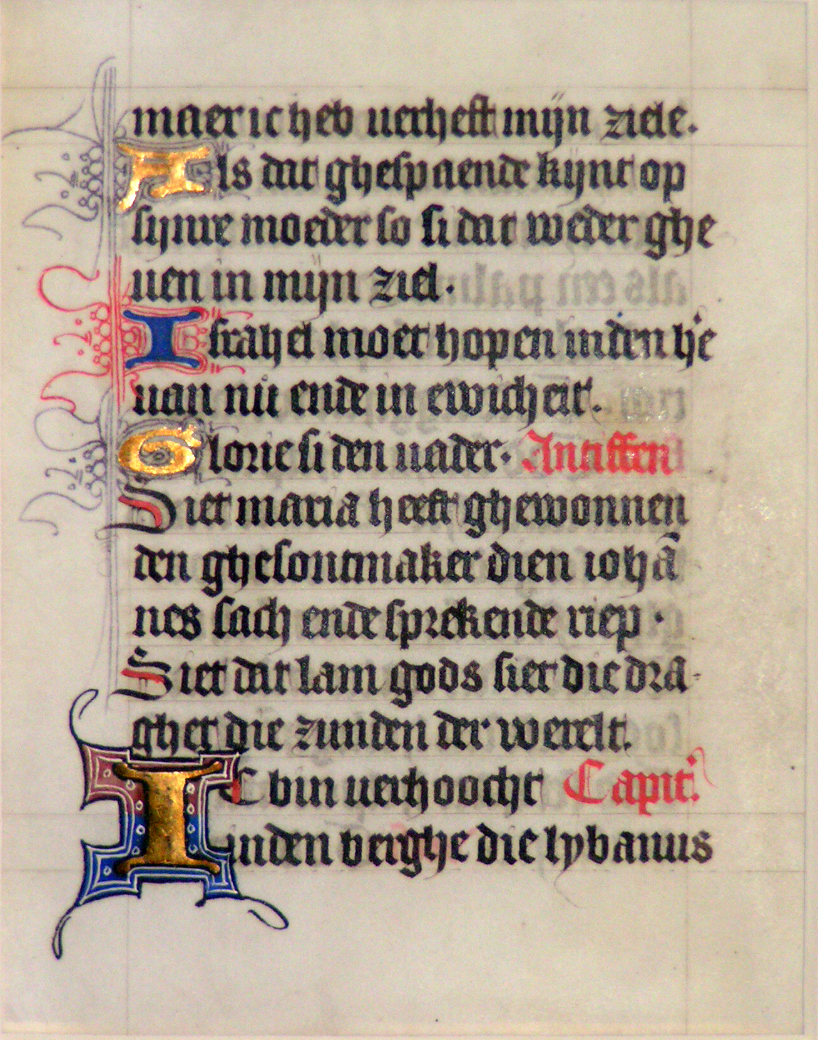 maer ic heb uerheft mijn ziele.
Als dat ghespaende kijnt op
sijnre moeder so si dat weder ghe
uen in mijn ziel.
Israhel moet hopen inden he
uan nu ende in ewicheit.
Glorie si den uader. Antiffen
Siet maria heeft ghewonnen
den ghesontmaker dien iohā
nes sach ende sprekende riep.
Siet dat lam gods siet die dra
ghet die zunden der werelt.
IC bin uerhoocht Capit.
inden berghe die lybanus